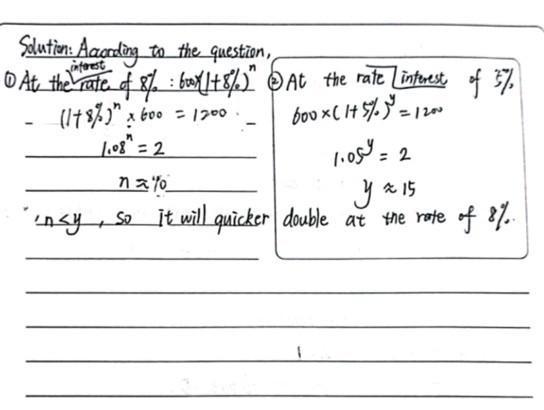 Solution: According to the question,
① At the interest rate of 8% : 600×(1+8%)ⁿ
(1+8%)ⁿ × 600 = 1200
1.08ⁿ = 2
n ≈ 10
② At the rate interest of 5%
600×(1+5%)ʸ = 1200
1.05ʸ = 2
y ≈ 15
∵ n<y, so it will quicker double at the rate of 8%.